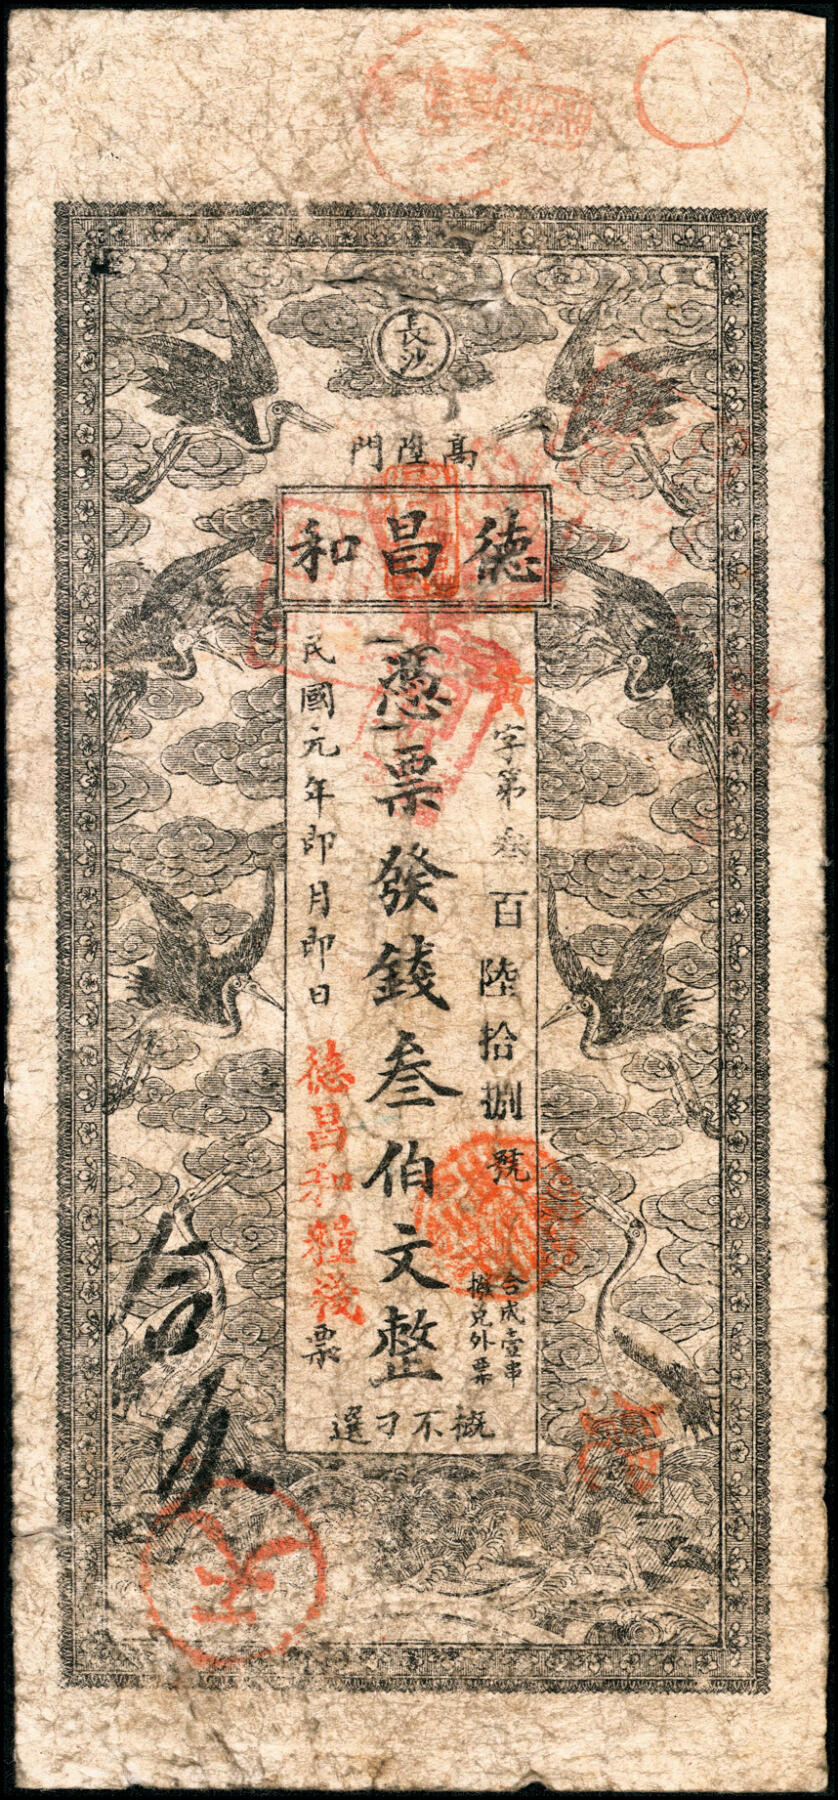 長沙
高陞門
德昌和
字第叁百陸拾捌號
合成壹串
撥兑外票
憑票發錢叁伯文整
民國元年即月即日
德昌和糧棧票
概不刁選